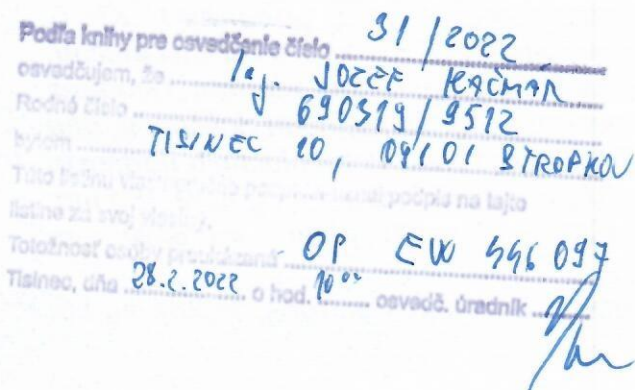 Podľa knihy pre osvedčenie číslo 31/2022
osvedčujem, že Ing. JOZEF KAČMAR
Rodné číslo 690319/9512
bytom TISINEC 10, 09101 STROPKOV
Túto listinu podpis na tejto
listine za svoj vlastný.
Totožnosť osoby preukázaná OP EW 446 097
Tisinec, dňa 28.2.2022 o hod. 10 00 osvedč. úradník